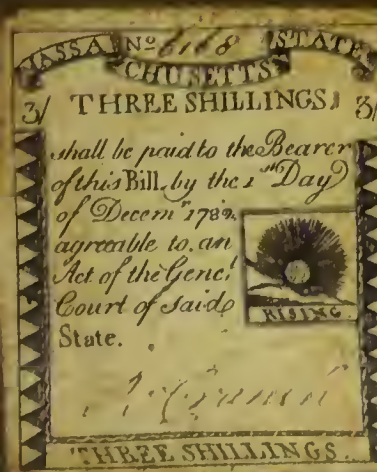 MASSA Nº 6168 STATE
CHUSETTS
3/ THREE SHILLINGS. 3/
shall be paid to the Bearer
of this Bill, by the 1st Day
of Decemr 1782
agreeable to an
Act of the Genel
Court of said
State.
RISING
THREE SHILLINGS.